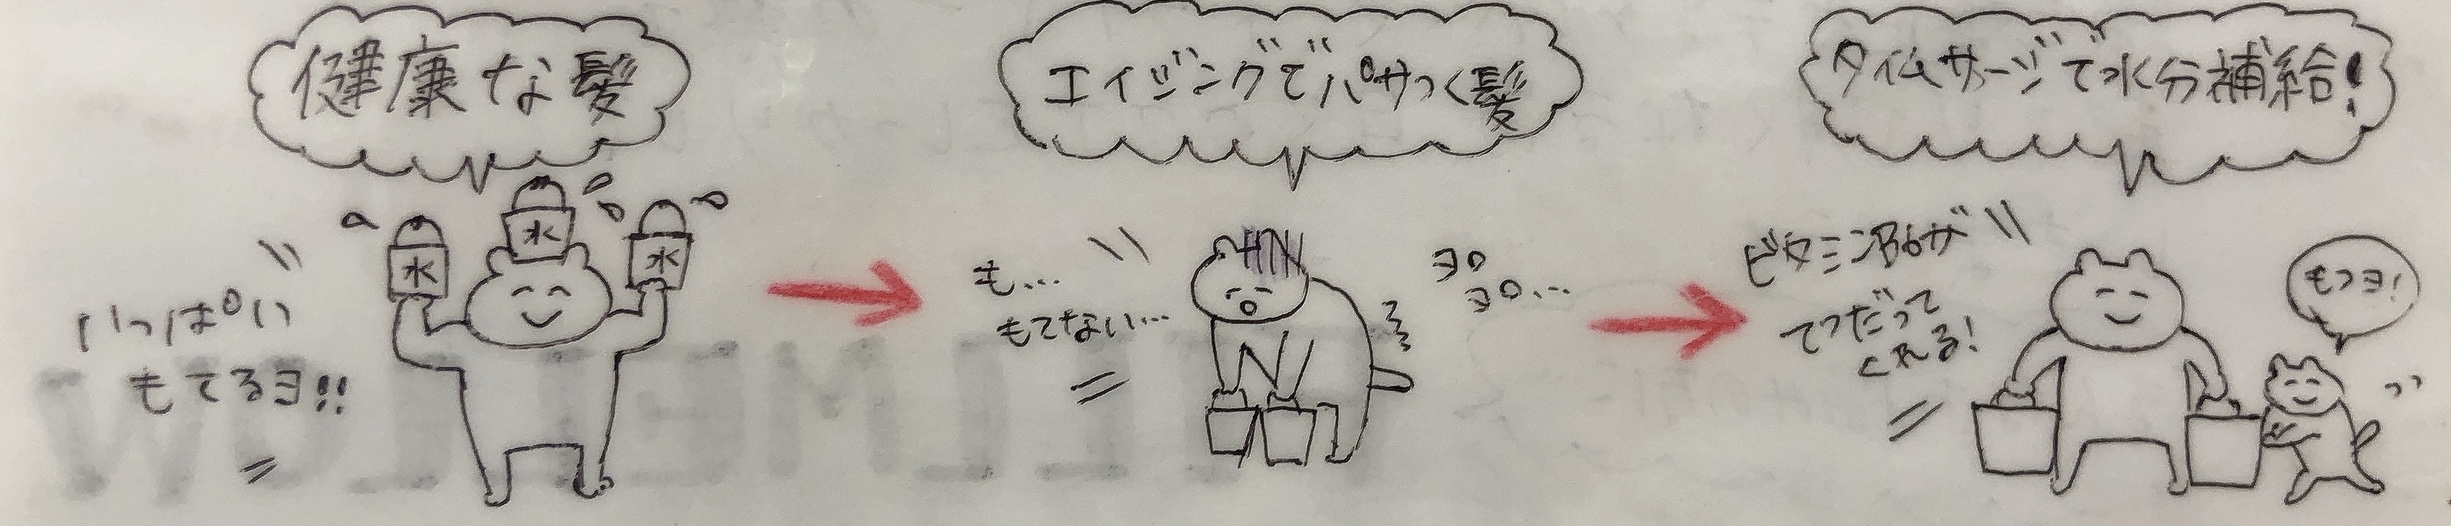 健康な髪
水
水
水
いっぱい
もてるヨ!!
エイジングでパサつく髪
も...
もてない...
ヨロ
ヨロ...
タイムサージで水分補給!
ビタミンB6が
てつだって
くれる!
もつヨ!